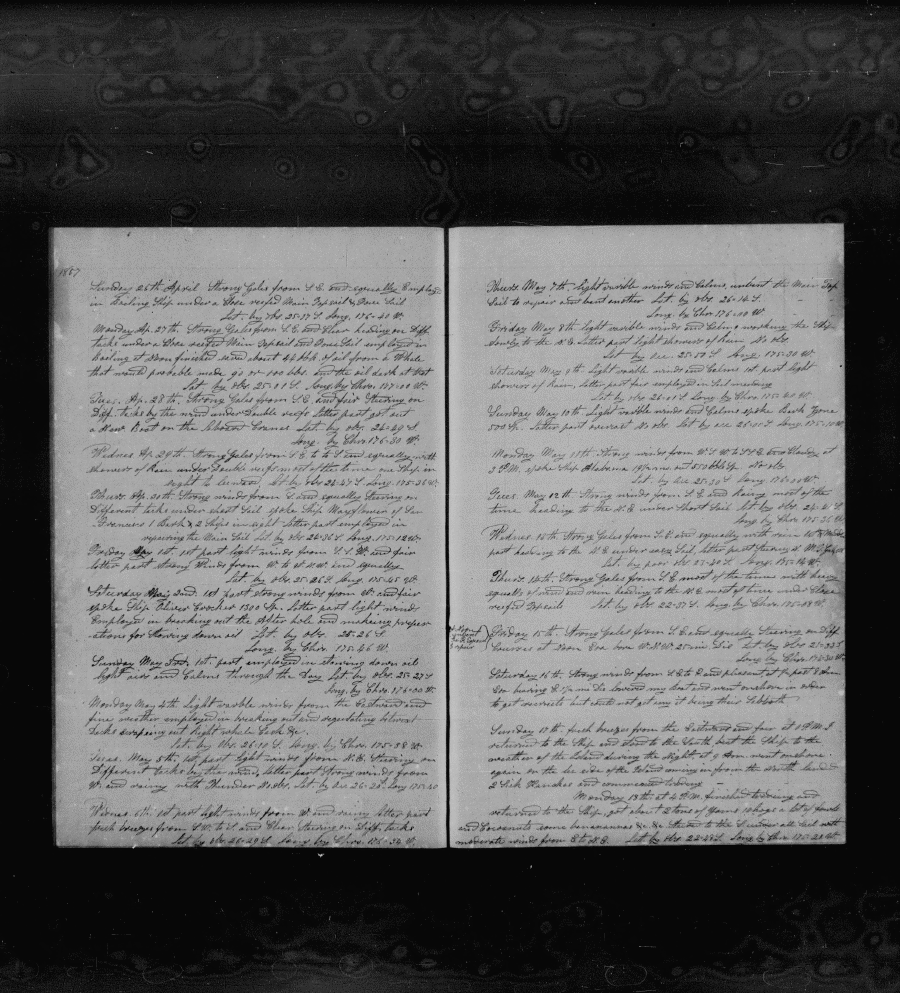 1857
Sunday 26th April Strong Gales from S.E. and squally Employed
in Boiling Ship under a Close reefed Main Topsail & Fore Sail
Lat. by Obs. 25-17 S. Long. 176-40 W.
Monday Ap. 27th. Strong Gales from S.E. and Clear heading on Diff.
tacks under a Close reefed Main Topsail and Fore Sail employed in
boiling at Noon finished about 44 bbls of oil from a Whale
that would probable made 90 or 100 bbls. and the oil dark at that
Lat. by Obs. 25-01 S. Long. by Chro. 177-00 W.
Tues. Ap. 28th. Strong Gales from S.E. and fair Steering on
Diff. tacks by the wind under Double reefs latter part got out
a New Boat on the Cranes Lat. by obs. 24-49 S.
Long. by Chro. 176-30 W.
Wednes Ap. 29th. Strong Gales from S.E. to S. and squally with
showers of Rain under Double reefs most of the time one Ship in
sight to leeward, Lat. by Obs. 24-47 S. Long. 175-36 W.
Thurs. Ap. 30th. Strong winds from S. and squally Steering on
Different tacks under short Sail spoke Ship Mayflower of
1 Bark & 2 Ships in sight latter part employed in
repairing the Main Sail Lat by Obs 24-36 S. Long. 175-12 W.
Friday May 1st. 1st part light winds from S.S.W. and fair
latter part strong Winds from W. to W.N.W. and squally
Lat. by Obs. 25-26 S. Long. 175-45 W.
Saturday May 2nd. 1st part strong winds from W. and fair
spoke Ship Oliver Crocker 1300 Sp. Latter part light winds
Employed in breaking out the After hole and making preper-
ations for Stowing down oil Lat. by obs. 25-26 S.
Long. by Chro. 175-46 W.
Sunday May 3rd. 1st. part employed in stowing down oil
light airs and Calms through the Day Lat. by Obs. 25-27 S
Long. by Chro. 176-00 W.
Monday May 4th Light varible winds from the Eastward and
fine weather employed in breaking out and between
Decks scraping out right whale &c.
Lat. by Obs. 26-10 S. Long. by Chro. 175-38 W.
Tues. May 5th. 1st. part Light winds from N.E. Steering on
Different tacks by the wind, latter part Strong winds from
W. and rainy with Thunder No obs. Lat. by Acc 26-28. Long 175-40
Wednes. 6th. 1st part light winds from W. and rainy latter part
fresh breezes from S.W. to S. and Clear Steering on Diff. tacks
Lat by Obs 26-29 S. Long by Chro. 176-34 W.
Thurs May 7th. Light varible winds and Calms, unbent the Main Top
Sail to repair and bent another Lat. by Obs. 26-14 S.
Long. by Chro 176-00 W.
Friday May 8th. light varible winds and Calms working the Ship
slowly to the N.E. latter part light showers of rain No obs
Lat. by acc. 25-50 S. Long. 175-30 W.
Saturday May 9th. Light varible winds and Calms 1st part light
showers of rain, latter part fair employed in Sail mending
Lat by obs 26-01 S. Long by Chro. 175-40 W.
Sunday May 10th. Light varible winds and Calms spoke Bark
500 Sp. Latter part overcast No obs Lat by acc 25-55 S Long. 175-10 W.
Monday May 11th. Strong winds from W.S.W. to S.S.E. and Cloudy at
3 P.M. spoke Ship Alabama 19 mos. out 550 bbls Sp. No obs.
Lat. by Acc 25-30 S. Long 175-00 W.
Tues. May 12th. Strong winds from S.E. and Rainy most of the
time heading to the N.E. under Short Sail Lat. by obs. 24-41 S
Long. by Chro. 175-35 W.
Wednes. 13th. Strong Gales from S.E. and squally with rain 1st & Middle
part heading to the N.E. under easy Sail, latter part
Lat. by poor obs. 23-40 S. Long. 175-16 W.
Thurs. 14th. Strong Gales from S.E. most of the time with heavy
squalls of wind and rain heading to the N.E. most of time under Close
reefed Topsails Lat by obs 22-37 S. Long. by Chro. 175-18 W.
Friday 15th. Strong Gales from S.E. and squally Steering on Diff.
Courses at Noon Eoa bore W.N.W. 25 mi Dis Lat by Obs 21-33 S
Long by Chro. 174-30 W.
Saturday 16th. Strong winds from S.E. to E. and pleasant at past 8 Am.
Eoa bearing E. 1/2 mi Dis lowered my boat and went onshore in order
to get recruits but could not get any it being their Sabbath
Sunday 17th. fresh breezes from the Eastward and fair at P.M. I
returned to the Ship and Stood to the South beat the Ship to the
weather of the Island during the Night, at 9 A.m. went onshore
again on the lee side of the Island coming in from the North landed
2 Sick Kanakas and commenced towing
Monday 18th at 4 P.M. finished towing and
returned to the Ship, got about 2 tons of Yams 10 hogs a lot of fowls
and Cocoanuts some bananas &c. &c. Steered to the Sunrise all Sail with
moderate winds from E. to N.E. Lat by Obs 22-48 S. Long by Chro 175-20 W.